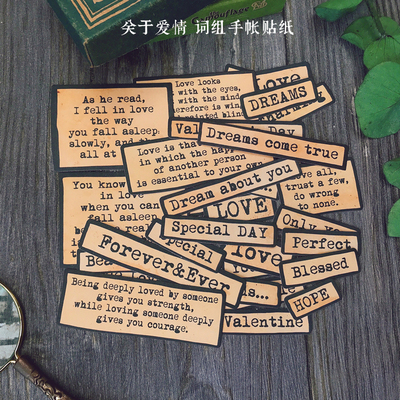 关于爱情 词组手帐贴纸
As he read,
I fell in love
the way
you fall asleep,
slowly, and
all at
Love looks
with the eyes,
with the mind
erefore is win
painted blin
Love
DREAMS
Val
Day
Dreams come true
Love is tha
in which the hap
of another person
is essential to your own
Dream about you
ve all,
trust a few,
do wrong
to none.
You know
in love
when you can
fall asleep
LOVE
Special DAY
Special
Only yo
Perfect
Love
Blessed
Forever&Ever
Bea
is...
HOPE
Being deeply loved by someone
gives you strength,
while loving someone deeply
gives you courage.
Valentine